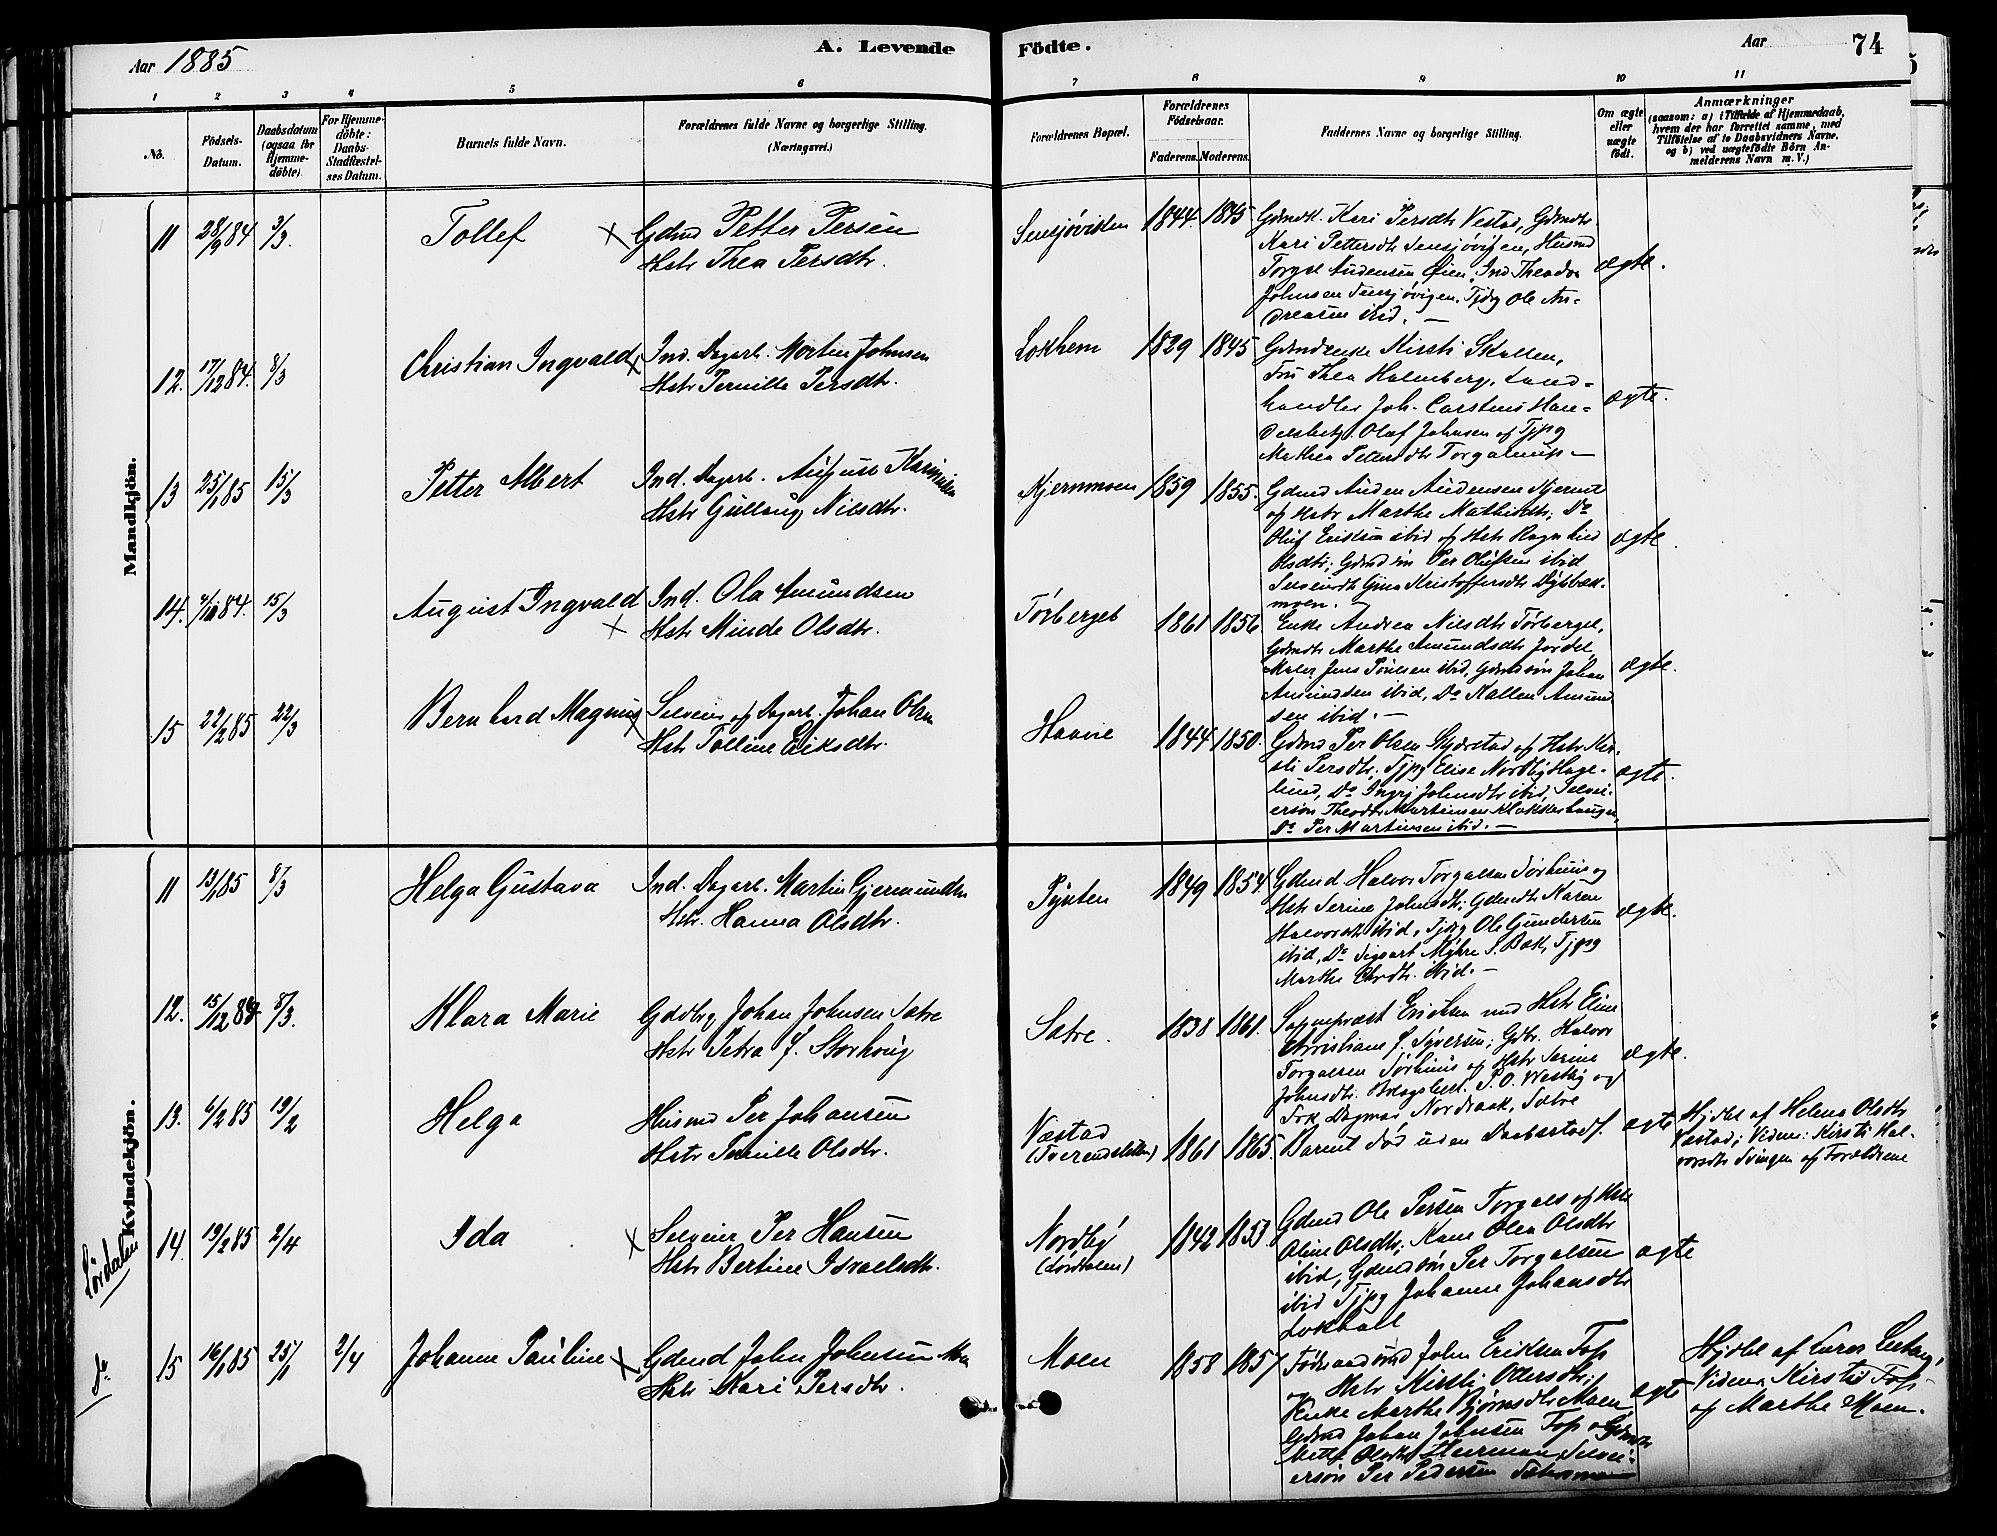 Aar 1885
A. Levende
Fødte.
Aar
74
1 2 3 4 5 6 7 8 9 10 11
No.
Fødsels-
Datum.
Daabsdatum
(ogsaa for
Hjemme-
døbte).
For Hjemme-
døbte:
Daabs-
Stadfæstel-
ses Datum.
Barnets fulde Navn.
Forældrenes fulde Navne og borgerlige Stilling.
(Næringsvei.)
Forældrenes Bopæl.
Forældrenes
Fødselsaar.
Faderens. Moderens.
Faddernes Navne og borgerlige Stilling.
Om ægte
eller
uægte
født.
Anmærkninger
(saasom: a) i Tilfælde af Hjemmedaab,
hvem der har forrettet samme, med
Tilføielse af to Daabsvidners Navne.
og b) ved uægtefødte Børn An-
melderens Navn m. V.)
Mandkjøn.
11 28/9 84 3/3. Tollef
Gdmd Petter Persen
Hstr Thea Persdtr.
Sensjøviken 1844. 1845
Gdmdk. Kari Persdtr Vestad, Gdmdtr
Kari Pettersdtr Sensjøvigen, Husmd
Torgel Audensen Øien, Ind. Theodor
Johnsen Sensjøvigen, Tjdrg Ole An-
dreasen ibid. —
ægte.
12. 17/12 84. 8/3 Christian Ingvald
Ind. Dagarb. Morten Johnsen
Hstr Pernille Persdtr.
Lokhem 1829 1845
Gdmdenke Kirsti Skallen,
Fru Thea Halmberg, Land-
handler Joh. Carstens Han-
delsbetj. Olaf Johnsen of Tjpg
Mathea Pettersdtr Torgalsrup —
ægte.
13 25/1 85 15/3 Petter Albert
Ind. Dagarb. August
Hstr Gullaug Nilsdtr.
Kjernmoen 1859 1855.
Gdmd Auden Audensen Kjernet
og Hstr Marthe Mathisdtr; Do
Oluf Eriksen ibid og Hstr Ragnhild
Olsdtr; Gdmdsøn Per Olufsen ibid
Gina Kristoffersdtr
moen. —
ægte.
14. 84. 15/3 August Ingvald
Ind. Ola Amundsen
Hstr Minde Olsdtr.
Tørberget 1861 1856
Enke Andrea Nilsdtr Tørberget,
Gdmdtr Marthe Amundsdtr Jordet,
Maler Jens Poulsen ibid, Gdmdsøn Johan
Amundsen ibid, Do Kallen Amund
sen ibid. —
ægte.
15 22/2 85 22/3 Bernhard Magnus
Selveier og Dagarb. Johan Olsen
Hstr Tolline Eriksdtr.
Haavie 1844 1850.
Gdmd Per Olsen Skjærstad og Hstr Kir-
sti Persdtr; Tjpg Elise Nordby Hage-
lund, Do Ingrj Johnsdtr ibid, Selvei-
ersøn Theodor Martinsen Klokkerhaugen,
Do Per Martinsen ibid. —
ægte.
Kvindekjøn.
11 13/1 85 8/3 Helga Gustava
Ind. Dagarb. Martin Gjermundsen
Hstr. Hanna Olsdtr.
Pynten 1849 1854.
Gdmd Halvor Torgalsen Sørhuus og
Hstr Serine Johnsdtr; Gdmdtr Karen
Halvorsdtr ibid, Tjdrg Ole Gundersen
ibid, Do Sigvart Myhre S. Bak, Tjpg
Marthe Olsdtr. ibid. —
ægte.
12. 15/12 84. 8/3. Klara Marie
Gdbrg Johan Johnsen Sætre
Hstr Petra f. Storhoug
Sætre. 1838 1861.
Sognepræst Erichsen med Hstr Eline
Christiane f. Syversen; Gdbr. Halvor
Torgalsen Sørhuus og Hstr Serine
Johnsdtr. P. O. Westby og
Frk Dagmar Nordraak, Sætre
ægte.
13. 6/2 85 19/2 Helga
Husmd Per Johansen
Hstr Pernille Olsdtr.
Væstad
1861 1865.
Barnet død uden Daabsstadf.
ægte
Hjdbt af Helena Olsdtr
Vestad; Vidner: Kirsti Hal-
vorsdtr Svingen og Forældrene
Lørdalen
14. 19/2 85 2/4 Ida
Selveier Per Hansen
Hstr Bertine Israelsdtr.
Nordby
(Lørdalen)
1842 1853
Gdmd Ole Persen Torgals og Hstr
Oline Olsdtr; Kone Olea Olsdtr
ibid, Gdmdsøn Per Torgalsen
ibid Tjpg Johanne Johansdtr
Lokball
ægte
Do
15 16/1 85 25/1 2/4 Johanne Pauline
Gdmd John Johnsen Moen
Hstr Kari Persdtr.
Moen 1858 1857
Føderaadsmd John Eriksen Top
og Hstr Kirsti Ottersdtr;
Enke Marthe Bjørnsdtr Moen,
Gdmd Johan Johnsen Top, Gdmdtr
Olsdtr Selvei-
ersøn Per Pedersen
ægte
Hjdbt af Lærer
Vidner: Kirsti Top
og Marthe Moen.